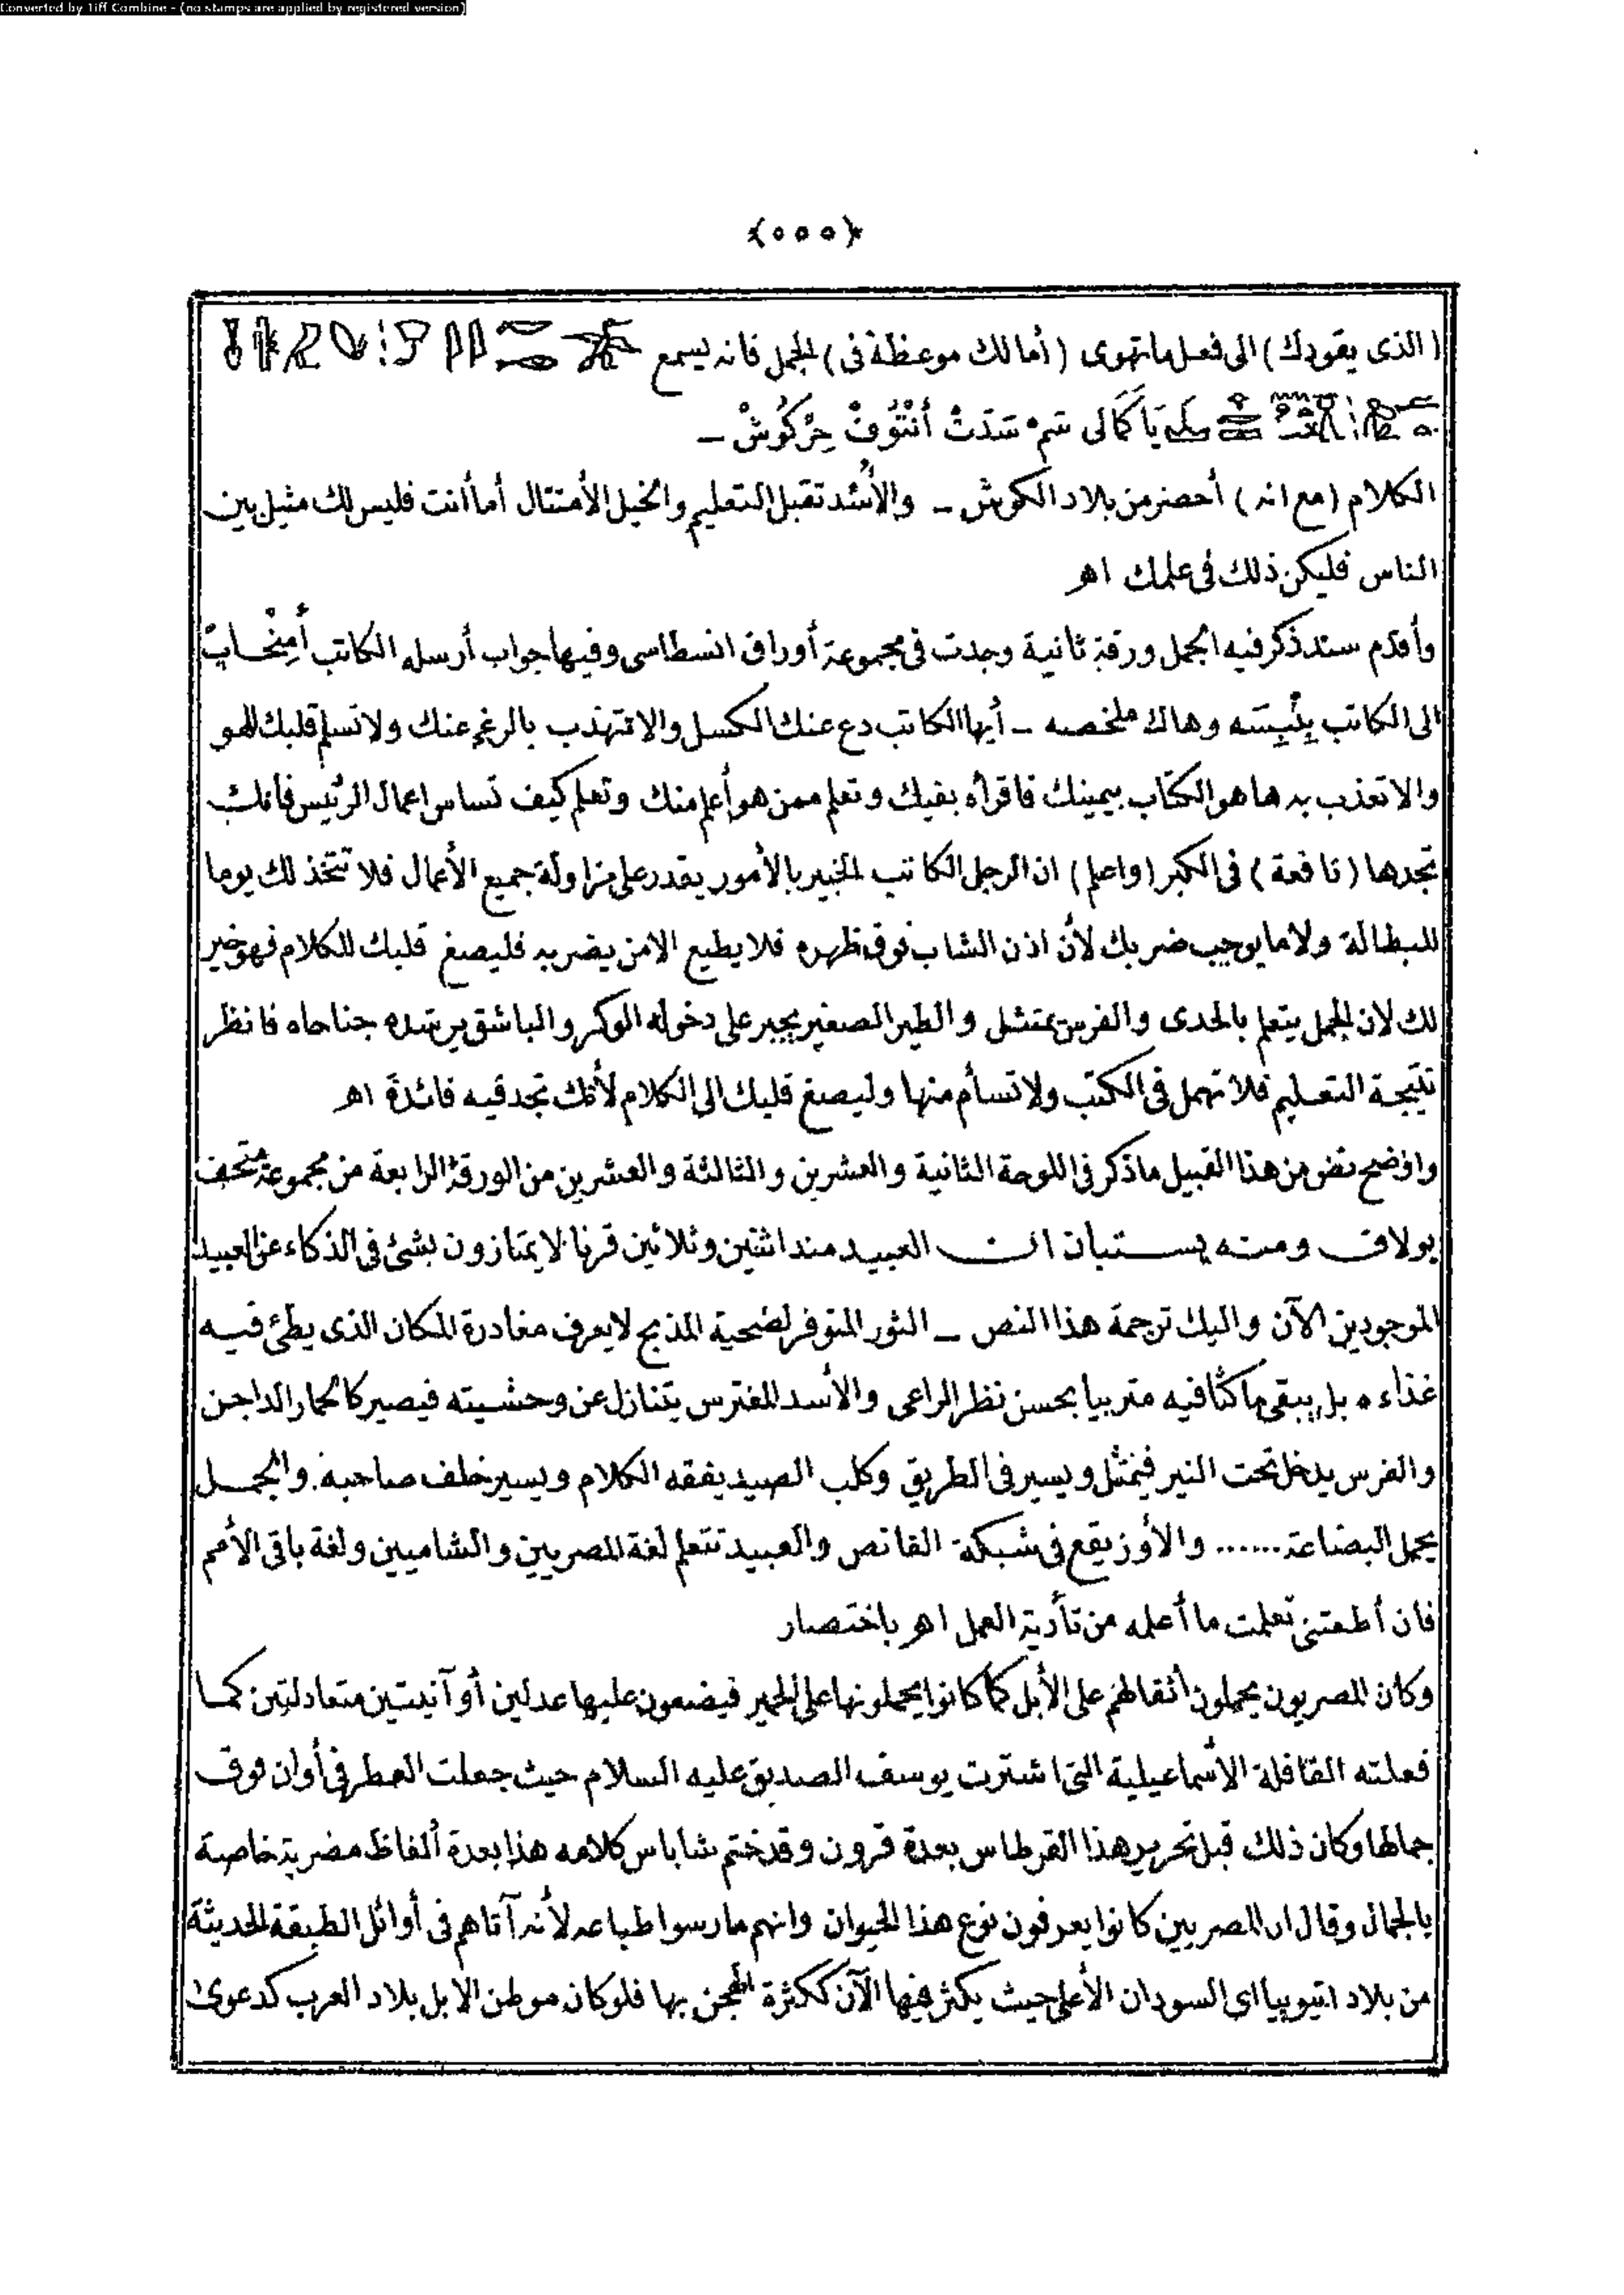 Converted by Tiff Combine - (no stamps are applied by registered version)
﴿٥٥٥﴾
(الذى يقودك) الى فعل ما تهوى (أما لك موعظة فى) الجمل فانه يسمع
يَا كَمَالى سَدَتْ أنْتُوُفْ حِرْكُوُشْ ـ
الكلام (مع انه) أحضر من بلاد الكوش ـ والأُسُد تقبل التعليم والخيل الأمتثال أما أنت فليس لك مثيل بين
الناس فليكن ذلك فى علمك اهـ
وأقدم سند ذكر فيه الجمل ورقة ثانية وجدت فى مجموعة أوراق انسطاسى وفيها جواب أرسله الكاتب أَمِنْحَابْ
الى الكاتب بِنْبِسَه وهاك ملخصه ـ أيها الكاتب دع عنك الكسل والا تتهذب بالرغم عنك ولا تسلم قلبك للهو
والا تعذب به ها هو الكتاب بيمينك فاقرأه بفيك وتعلم ممن هو أعلم منك وتعلم كيف تساس اعمال الرئيس فأنك
تجدها (نافعة) فى الكبر (واعلم) ان الرجل الكاتب الخبير بالأمور يقدر على مزاولة جميع الأعمال فلا تتخذ لك يوما
للبطالة ولا ما يوجب ضربك لأن اذن الشاب فوق ظهره فلا يطيع الا من يضربه فليصغ قلبك للكلام فهو خير
لك لان الجمل يتعلم بالحدى والفرس يمتثل والطير الصغير يجبر على دخوله الوكر والباشق يرشده جناحاه فانظر
نتيجة التعليم فلا تهمل فى الكتب ولا تسأم منها وليصغ قلبك الى الكلام لأنك تجد فيه فائدة اهـ
واوضح نص من هذا القبيل ما ذكر فى اللوحة الثانية والعشرين والثالثة والعشرين من الورقة الرابعة من مجموعة متحف
بولاق ومنه يستبان ان العبيد منذ اثنين وثلاثين قرنا لا يمتازون بشئ فى الذكاء عن العبيد
الموجودين الآن واليك ترجمة هذا النص ـ الثور المتوفر لضحية المذبح لا يعرف مغادرة المكان الذى يطئ فيه
غذاءه بل يبقى ماكثا فيه متربيا بحسن نظر الراعى والأسد المفترس يتنازل عن وحشيته فيصير كالحمار الداجن
والفرس يدخل تحت النير فيمتثل ويسير فى الطريق وكلب الصيد يفقه الكلام ويسير خلف صاحبه. والجمل
يحمل البضاعة...... والأوز يقع فى شبكة القانص والعبيد تتعلم لغة المصريين والشاميين ولغة باقى الأمم
فان أطعتنى تعلمت ما أعلمه من تأدية العمل اهـ باختصار
وكان المصريون يحملون أثقالهم على الأبل كما كانوا يحملونها على الحمير فيضعون عليها عدلين أو آنيتين متعادلتين كما
فعلته القافلة الأسماعيلية التى اشترت يوسف الصديق عليه السلام حيث جعلت العطر فى أوان فوق
جمالها وكان ذلك قبل تحرير هذا القرطاس بعدة قرون وقد ختم شاباس كلامه هذا بعدة ألفاظ مضرية خاصة
بالجمال وقال ان المصريين كانوا يعرفون نوع هذا الحيوان وانهم مارسوا طباعه لأنه آتاهم فى أوائل الطبقة الحديثة
من بلاد اتيوپيا اى السودان الأعلى حيث يكثر فيها الآن ككثرة الهجن بها فلو كان موطن الابل بلاد العرب كدعوى